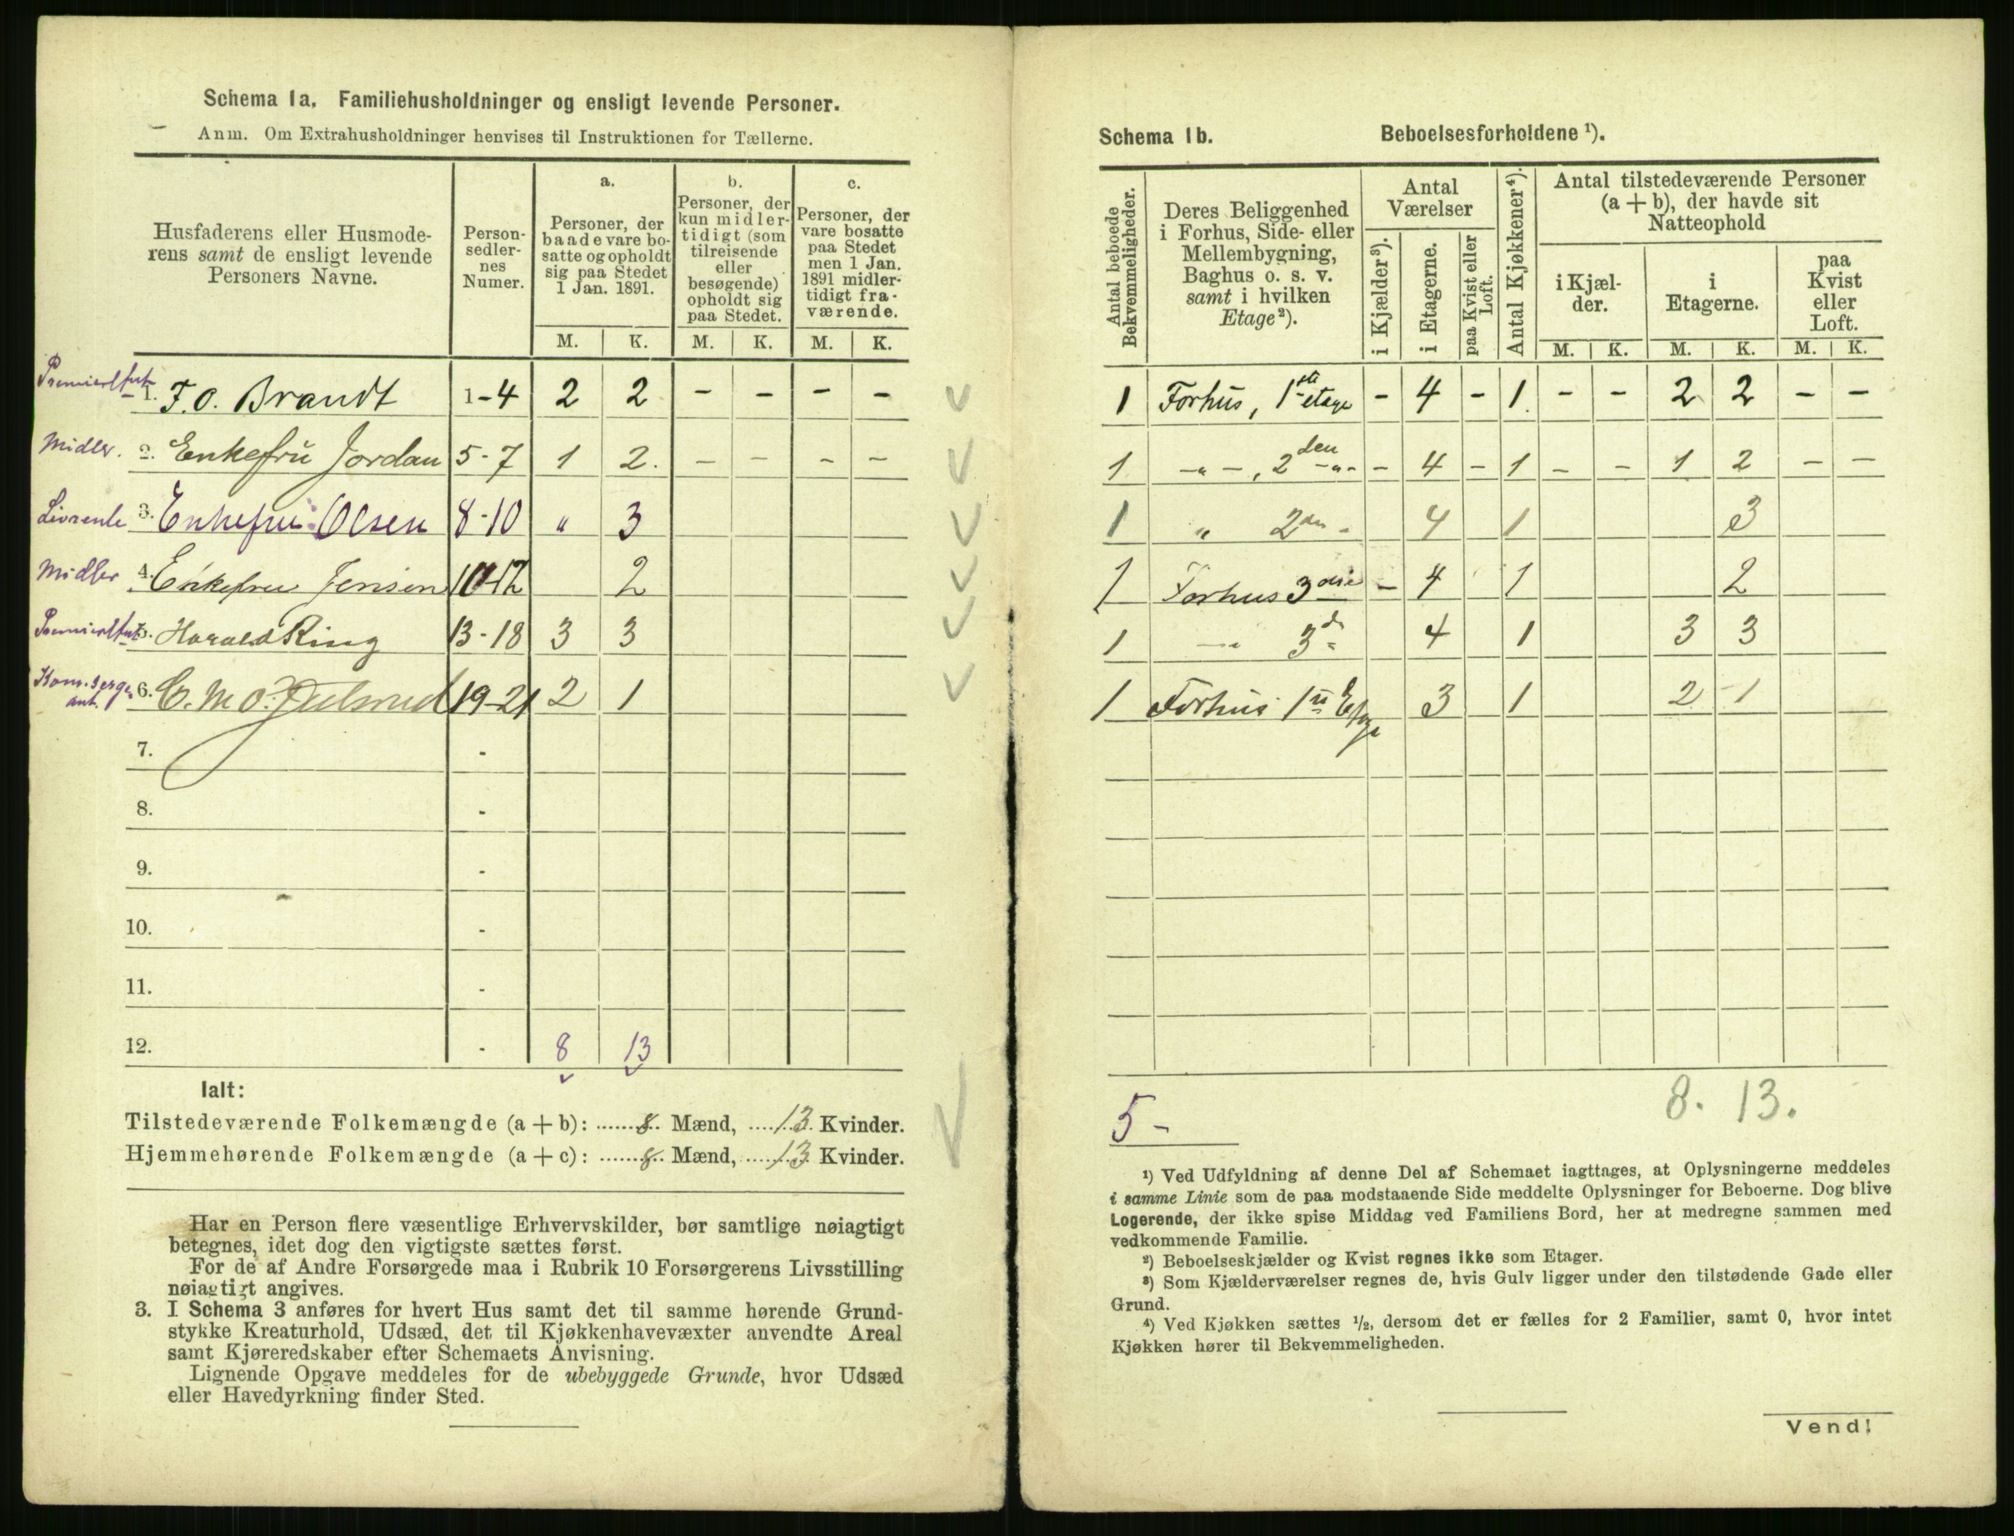 Schema 1a. Familiehusholdninger og ensligt levende Personer.
Anm. Om Extrahusholdninger henvises til Instruktionen for Tællerne.
Husfaderens eller Husmode-
rens samt de ensligt levende
Personers Navne.
Person-
sedler-
nes
Numer.
a.
Personer, der
baade vare bo-
satte og opholdt
sig paa Stedet
1 Jan. 1891.
b.
Personer, der
kun midler-
tidigt (som
tilreisende
eller
besøgende)
opholdt sig
paa Stedet.
c.
Personer, der
vare bosatte
paa Stedet
men 1 Jan.
1891 midler-
tidigt fra-
værende.
M. K. M. K. M. K.
Premierltnt 1. F. O. Brandt 1-4 2 2 - - - -
Midler. 2. Enkefru Jordan 5-7 1 2. - - - -
Livrente 3. Enkefru Olsen 8-10 " 3
Midler 4. Enkefru Jensen 12 2
Premierltnt 5. Harald Ring 13-18 3 3
Kom.serge
ant. 6. C. M. O. 19-21 2 1
7. -
8. -
9. -
10. -
11. -
12. - 8 13
Ialt:
Tilstedeværende Folkemængde (a + b): 8 Mænd, 13 Kvinder.
Hjemmehørende Folkemængde (a + c): 8 Mænd, 13 Kvinder.
Har en Person flere væsentlige Erhvervskilder, bør samtlige nøiagtigt
betegnes, idet dog den vigtigste sættes først.
For de af Andre Forsørgede maa i Rubrik 10 Forsørgerens Livsstilling
nøiagtigt angives.
3. I Schema 3 anføres for hvert Hus samt det til samme hørende Grund-
stykke Kreaturhold, Udsæd, det til Kjøkkenhavevæxter anvendte Areal
samt Kjøreredskaber efter Schemaets Anvisning.
Lignende Opgave meddeles for de ubebyggede Grunde, hvor Udsæd
eller Havedyrkning finder Sted.
Schema 1b. Beboelsesforholdene ¹).
Antal beboede
Bekvemmeligheder.
Deres Beliggenhed
i Forhus, Side- eller
Mellembygning,
Baghus o. s. v.
samt i hvilken
Etage²).
Antal
Værelser
i Kjælder³).
i Etagerne.
paa Kvist eller
Loft.
Antal Kjøkkener⁴).
Antal tilstedeværende Personer
(a + b), der havde sit
Natteophold
i Kjæl-
der.
i
Etagerne.
paa
Kvist
eller
Loft.
M. K. M. K. M. K.
1 Forhus, 1ste etage - 4 - 1. - - 2 2 - -
1 -"-, 2den -"- - 4 - 1 - - 1 2 - -
1 " 2den - 4 1 3
1 Forhus 3die - 4 1 2
1 -"- 3d- 4 1 3 3
1 Forhus 1ste Etage 3 1 2 1
8. 13.
5-
¹) Ved Udfyldning af denne Del af Schemaet iagttages, at Oplysningerne meddeles
i samme Linie som de paa modstaaende Side meddelte Oplysninger for Beboerne. Dog blive
Logerende, der ikke spise Middag ved Familiens Bord, her at medregne sammen med
vedkommende Familie.
²) Beboelseskjælder og Kvist regnes ikke som Etager.
³) Som Kjælderværelser regnes de, hvis Gulv ligger under den tilstødende Gade eller
Grund.
⁴) Ved Kjøkken sættes ½, dersom det er fælles for 2 Familier, samt 0, hvor intet
Kjøkken hører til Bekvemmeligheden.
Vend!